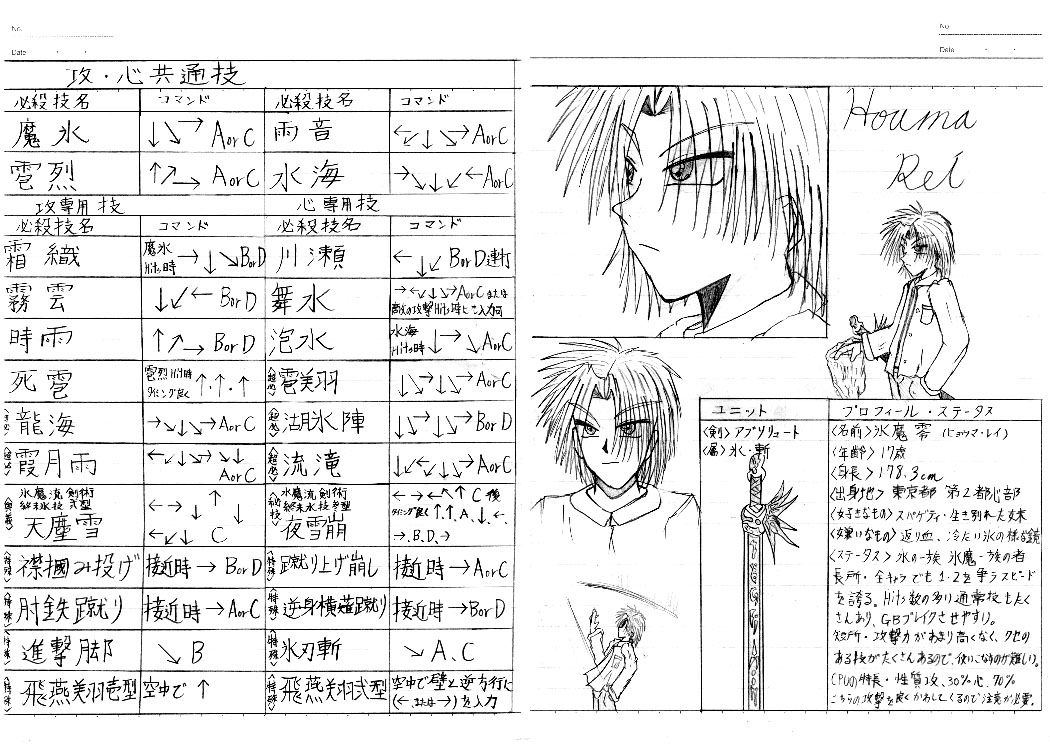 No.
Date
攻・心共通技
必殺技名 コマンド 必殺技名 コマンド
魔氷 ↓↘→ AorC 雨音 ←↙↓↘→ AorC
雹烈 ↑↗→ AorC 水海 →↘↓↙← AorC
攻専用技 心専用技
必殺技名 コマンド 必殺技名 コマンド
霜織 魔氷Hits時 →↓↘BorD 川瀬 ←↓↙ BorD連打
霧雲 ↓↙← BorD 舞水 →←↙↓↘→AorC または
時雨 ↑↗→ BorD 泡水 水海Hits時 ↓→↘AorC
死雹 雹烈Hit時 タイミング良く ↑・↑・↑ 雹美羽 ↓↘→↓↘→AorC
龍海 →↘↓↘→AorC 湖氷陣 ↓↘→↓↘→BorD
霞月雨 AorC 流滝 AorC
氷魔流剣術
天塵雪 ←→↓↑↓ ←↙↓ C
氷魔流剣術
夜雪崩 ←→←↖↑ C 後 タイミング良く ↑.↑.A.↓.←.→.B.D.→
襟掴み投げ 接近時→ BorD 蹴り上げ崩し 接近時→AorC
肘鉄蹴り 接近時→AorC 逆身横薙蹴り 接近時→BorD
進撃脚 ↘ B 氷刃斬 ↘ A、C
飛燕美羽壱型 空中で ↑ 飛燕美羽弐型 空中で壁と逆方向に(← または→)を入力
No.
Date
Houma
Rei
ユニット
〈剣〉アブソリュート
〈属〉氷・斬
プロフィール・ステータス
〈名前〉氷魔 零 (ヒョウマ・レイ)
〈年齢〉17歳
〈身長〉178.3cm
〈出身地〉東京都 第2都心部
〈好きなもの〉スパゲティ・生き別れた妹
〈嫌いなもの〉返り血、冷たい氷の様な鏡
〈ステータス〉氷の一族 氷魔一族の者
長所・全キャラでも1・2を争うスピード
を誇る。Hits数の多い通常技もたく
さんあり、GBブレイクさせやすい。
短所・攻撃力があまり高くなく、クセの
ある技がたくさんあるので、使いこなすのが難しい。
CPUの特長・性質 攻、30% 心、70%
こちらの攻撃を良くかわしてくるので注意が必要。